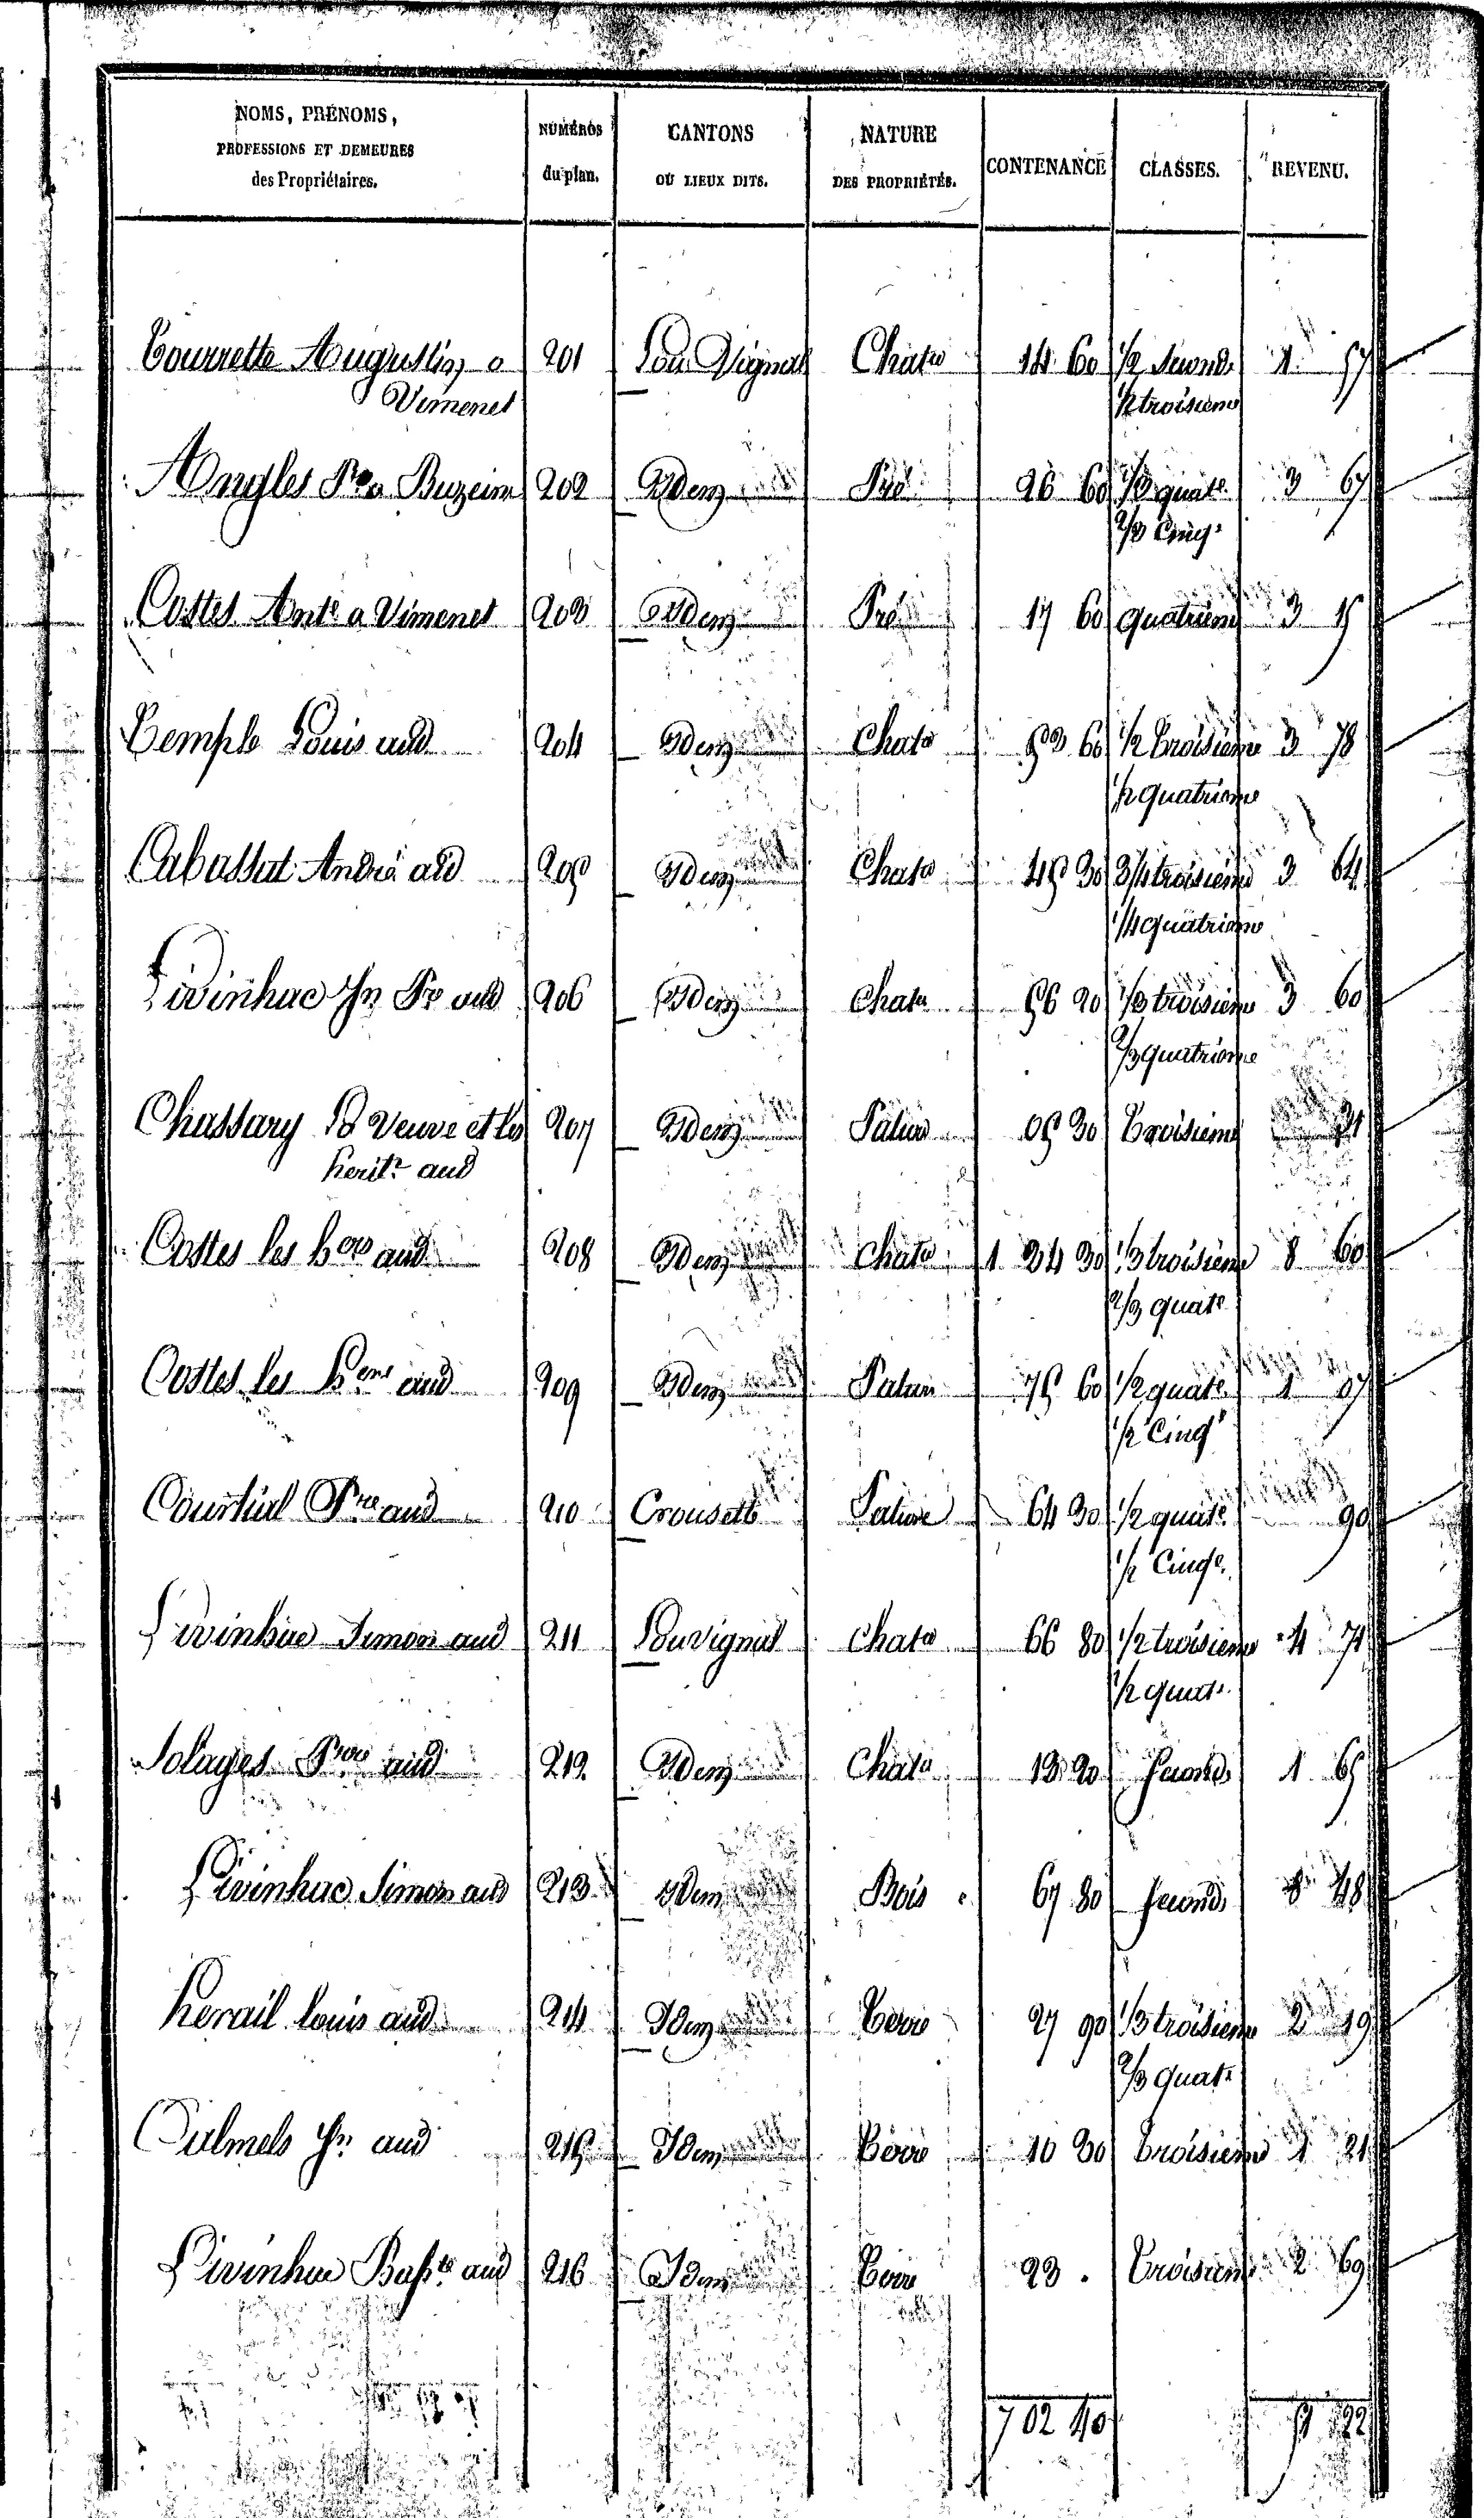 NOMS, PRÉNOMS, PROFESSIONS ET DEMEURES des Propriétaires. NUMÉROS du plan. CANTONS OU LIEUX DITS. NATURE DES PROPRIÉTÉS. CONTENANCE CLASSES. REVENU.
Tourrette Augustin a 201 Lou Vignal Chatre 14 60 1/2 Second 1 57
Vimenet 1/2 troisieme
Angles Pre a Buzeins 202 Idem Pré 26 60 1/3 quatre 3 67
2/3 Cinqe
Costes Ante a Vimenet 203 Idem Pré 17 60 quatrieme 3 15
Temple Louis aud 204 Idem Chatre 52 60 1/2 Troisieme 3 78
1/2 quatrieme
Cabassut André aud 205 Idem Chatre 45 30 3/4 troisieme 3 64
1/4 quatrieme
Livinhac Jn Pre aud 206 Idem Chatre 56 20 1/3 troisieme 3 60
2/3 quatrieme
Chassary La Veuve et les 207 Idem Pature 05 30 Troisieme 21
herits aud
Costes les hers aud 208 Idem Chatre 1 34 30 1/3 troisieme 8 60
2/3 quate
Costes les hers aud 209 Idem Pature 75 60 1/2 quate 1 07
1/2 Cinqe
Courtial Pre aud 210 Crousette Pature 64 30 1/2 quate 90
1/2 Cinqe
Livinhac Simon aud 211 Louvignal Chatre 66 80 1/2 troisieme 4 74
1/2 quate
Solages Pre aud 212 Idem Chatre 13 20 Seconde 1 65
Livinhac Simon aud 213 Idem Bois 67 80 Seconde 8 48
herail louis aud 214 Idem Terre 27 90 1/3 troisieme 2 19
2/3 quate
Culmels Jn aud 215 Idem Terre 10 30 Troisieme 1 21
Livinhac Baptte aud 216 Idem Terre 23 . Troisieme 2 69
7 02 40